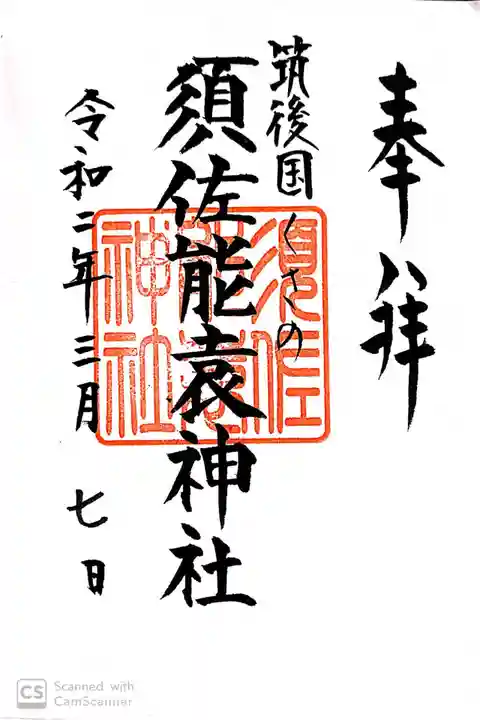 奉拝
筑後国くさの
須佐能袁神社
須佐
能袁
神社
令和二年三月 七日
CS Scanned with
CamScanner